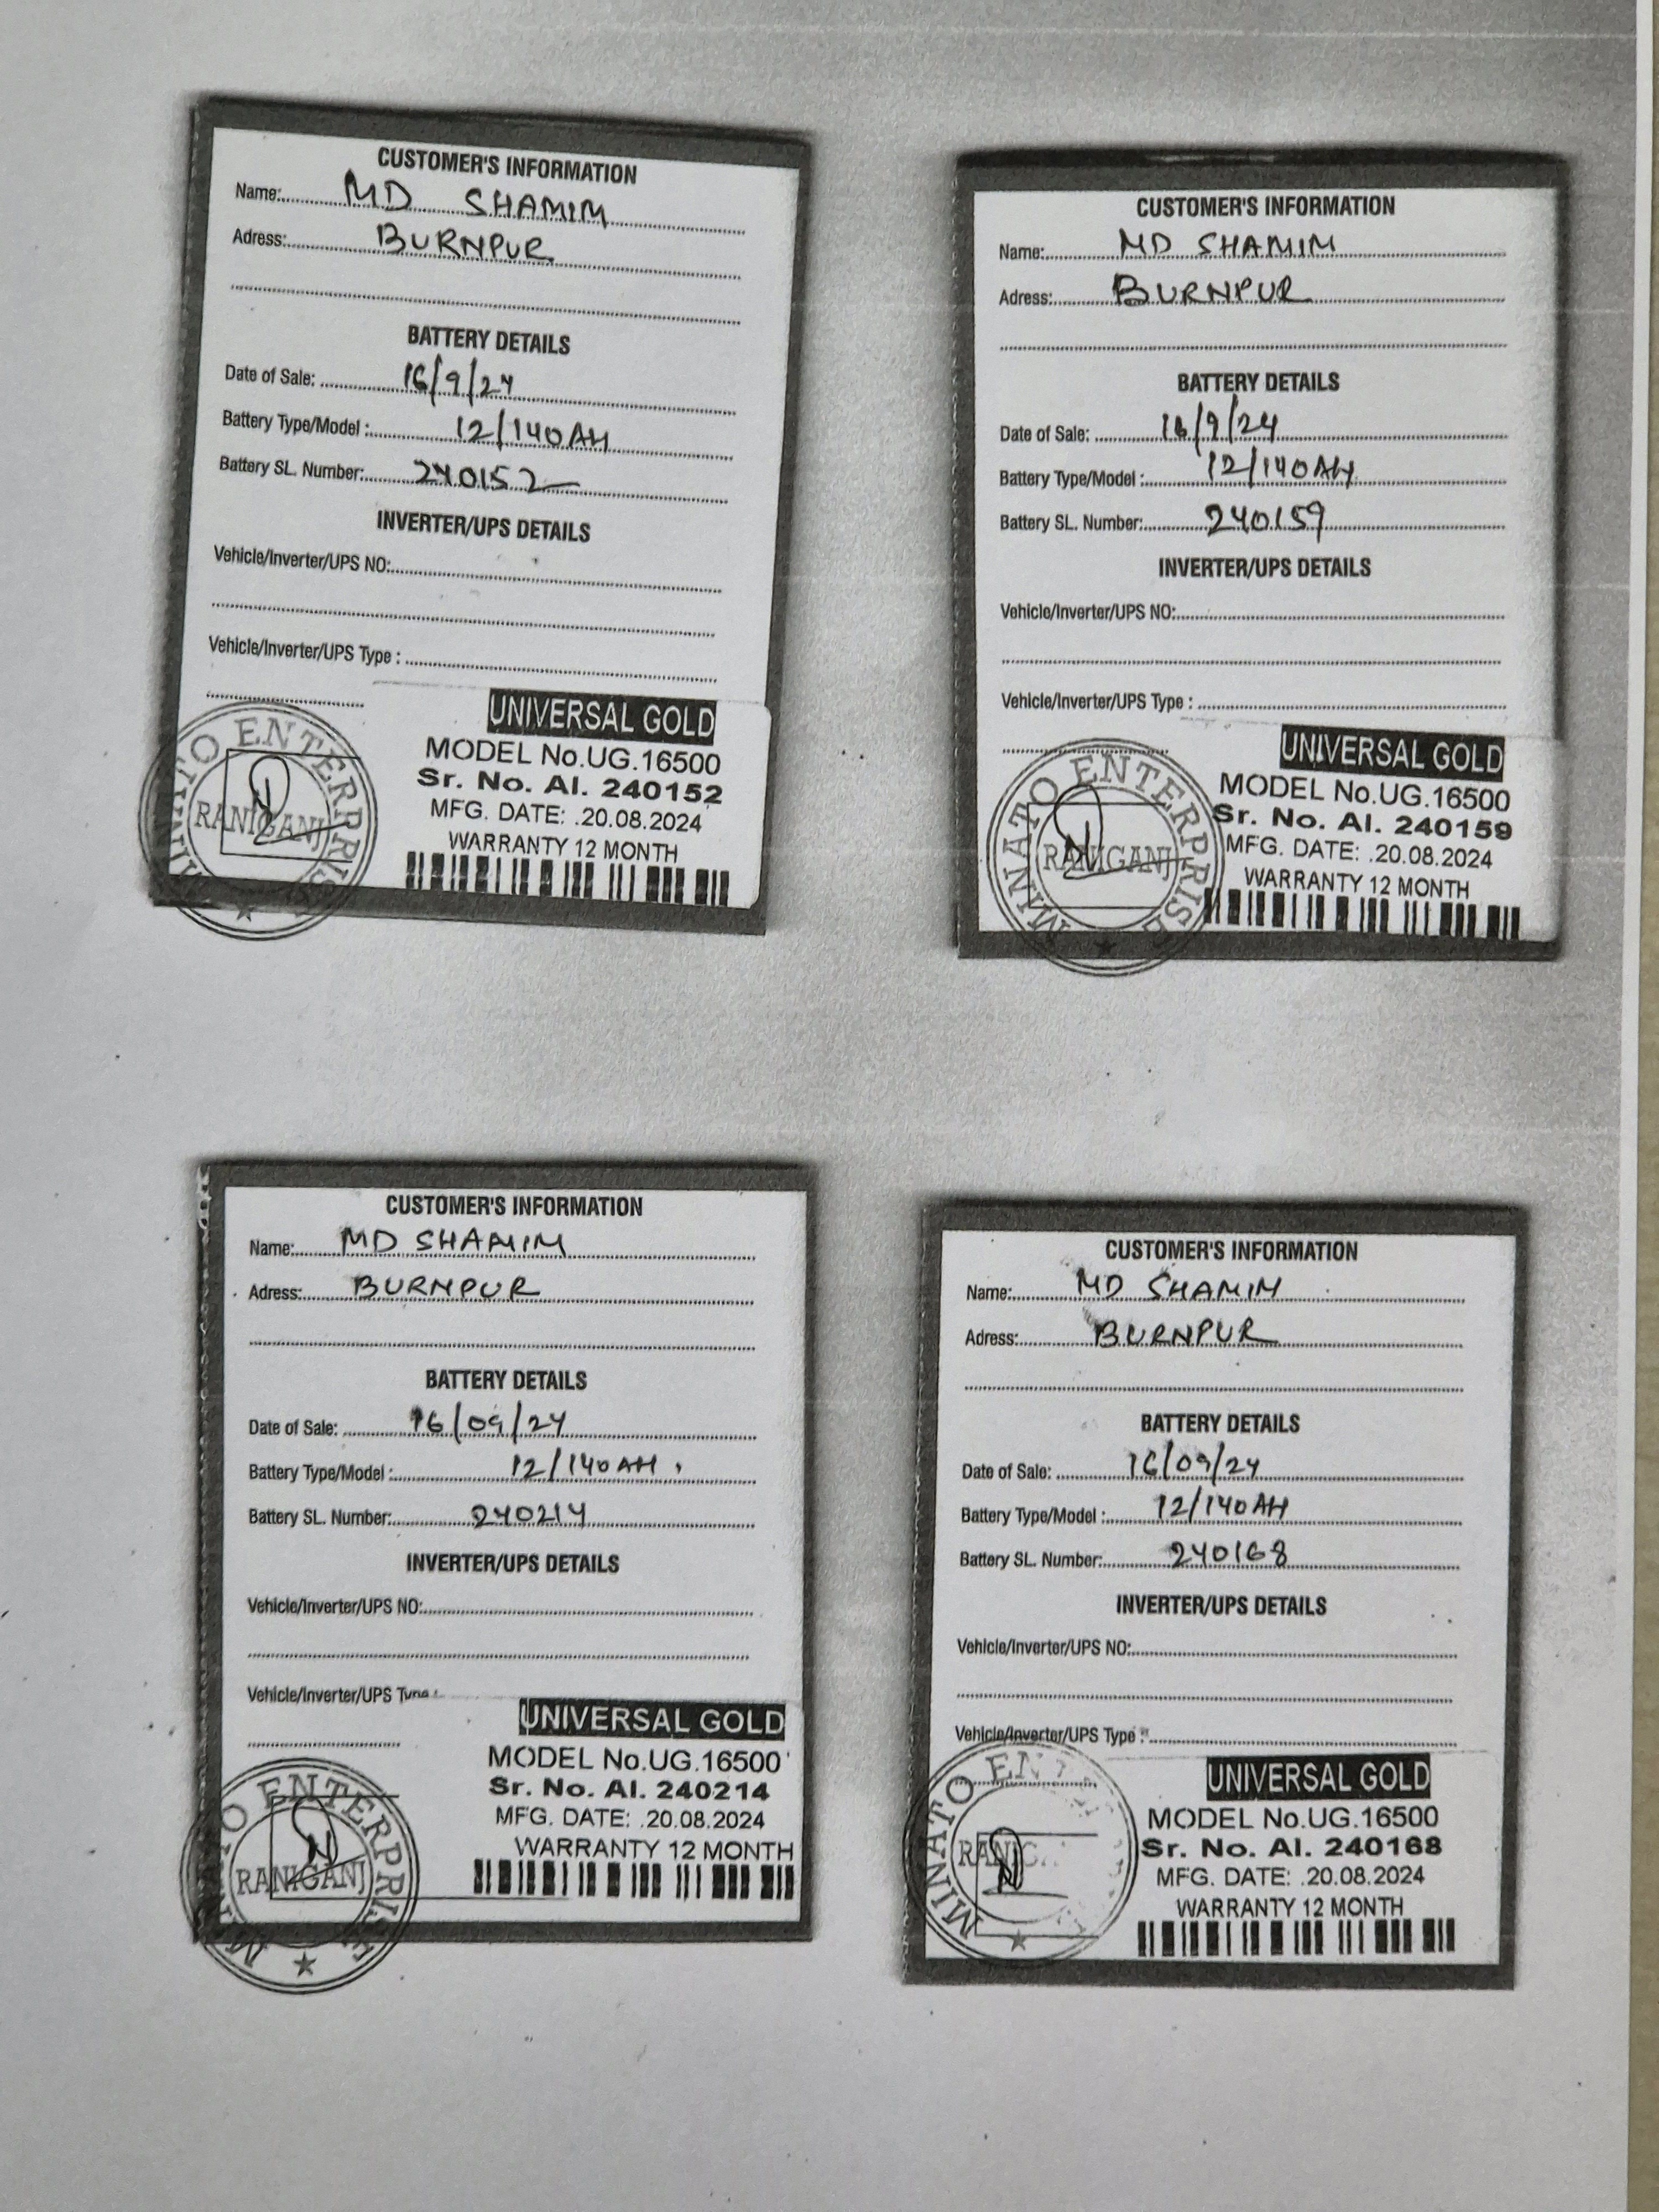 CUSTOMER'S INFORMATION
Name: MD SHAMIM
Adress: BURNPUR
BATTERY DETAILS
Date of Sale: 16/9/24
Battery Type/Model : 12/140AH
Battery SL. Number: 240152
INVERTER/UPS DETAILS
Vehicle/Inverter/UPS NO:
Vehicle/Inverter/UPS Type :
UNIVERSAL GOLD
MODEL No.UG.16500
Sr. No. Al. 240152
MFG. DATE: .20.08.2024
WARRANTY 12 MONTH
MINATO ENTERPRISE
RANIGANJ
CUSTOMER'S INFORMATION
Name: MD SHAMIM
Adress: BURNPUR
BATTERY DETAILS
Date of Sale: 16/9/24
Battery Type/Model : 12/140AH
Battery SL. Number: 240159
INVERTER/UPS DETAILS
Vehicle/Inverter/UPS NO:
Vehicle/Inverter/UPS Type :
UNIVERSAL GOLD
MODEL No.UG.16500
Sr. No. Al. 240159
MFG. DATE: .20.08.2024
WARRANTY 12 MONTH
MINATO ENTERPRISE
RANIGANJ
CUSTOMER'S INFORMATION
Name: MD SHAMIM
Adress: BURNPUR
BATTERY DETAILS
Date of Sale: 16/09/24
Battery Type/Model : 12/140AH
Battery SL. Number: 240214
INVERTER/UPS DETAILS
Vehicle/Inverter/UPS NO:
Vehicle/Inverter/UPS Type :
UNIVERSAL GOLD
MODEL No.UG.16500
Sr. No. Al. 240214
MFG. DATE: .20.08.2024
WARRANTY 12 MONTH
MINATO ENTERPRISE
RANIGANJ
CUSTOMER'S INFORMATION
Name: MD SHAMIM
Adress: BURNPUR
BATTERY DETAILS
Date of Sale: 16/09/24
Battery Type/Model : 12/140AH
Battery SL. Number: 240168
INVERTER/UPS DETAILS
Vehicle/Inverter/UPS NO:
Vehicle/Inverter/UPS Type :
UNIVERSAL GOLD
MODEL No.UG.16500
Sr. No. Al. 240168
MFG. DATE: .20.08.2024
WARRANTY 12 MONTH
MINATO